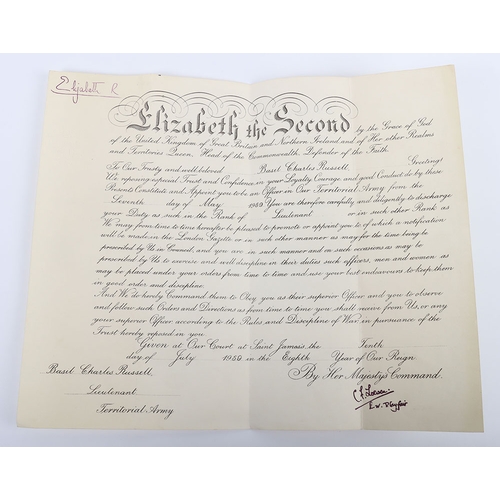 Elizabeth R
Elizabeth the Second by the Grace of God
of the United Kingdom of Great Britain and Northern Ireland and of Her other Realms
and Territories Queen, Head of the Commonwealth, Defender of the Faith.
To Our Trusty and well beloved Basil Charles Russell, Greeting!
We reposing especial Trust and Confidence in your Loyalty Courage and good Conduct do by these
Presents Constitute and Appoint you to be an Officer in Our Territorial Army from the
Seventh day of May 1959 You are therefore carefully and diligently to discharge
your Duty as such in the Rank of Lieutenant or in such other Rank as
We may from time to time hereafter be pleased to promote or appoint you to of which a notification
will be made in the London Gazette or in such other manner as may for the time being be
prescribed by Us in Council, and you are in such manner and on such occasions as may be
prescribed by Us to exercise and well discipline in their duties such officers, men and women as
may be placed under your orders from time to time and use your best endeavours to keep them
in good order and discipline.
And We do hereby Command them to Obey you as their superior Officer and you to observe
and follow such Orders and Directions as from time to time you shall receive from Us, or any
your superior Officer according to the Rules and Discipline of War in pursuance of the
Trust hereby reposed in you.
Given at Our Court at Saint James's, the Tenth
day of July 1959 in the Eighth Year of Our Reign
By Her Majesty's Command.
Basil Charles Russell
Lieutenant
Territorial Army
E.W. Playfair